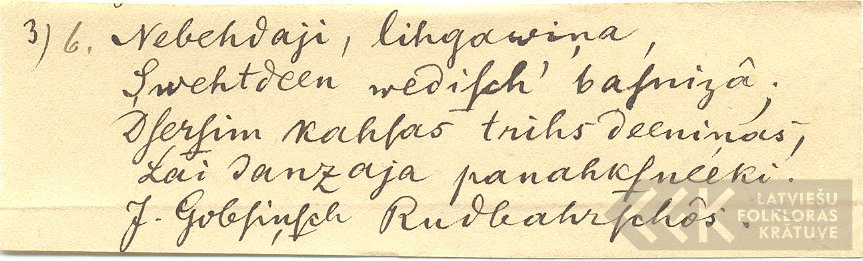 3) 6. Nebehdaji, lihgawiņa,
Swehtdeen wediſch' baſnizâ;
Dſerſim kahſas trihs deeniņas,
Lai danzaja panahkſneeki.
J. Gobſiņſch Rudbahrſchôs.
LATVIEŠU
FOLKLORAS
KRĀTUVE